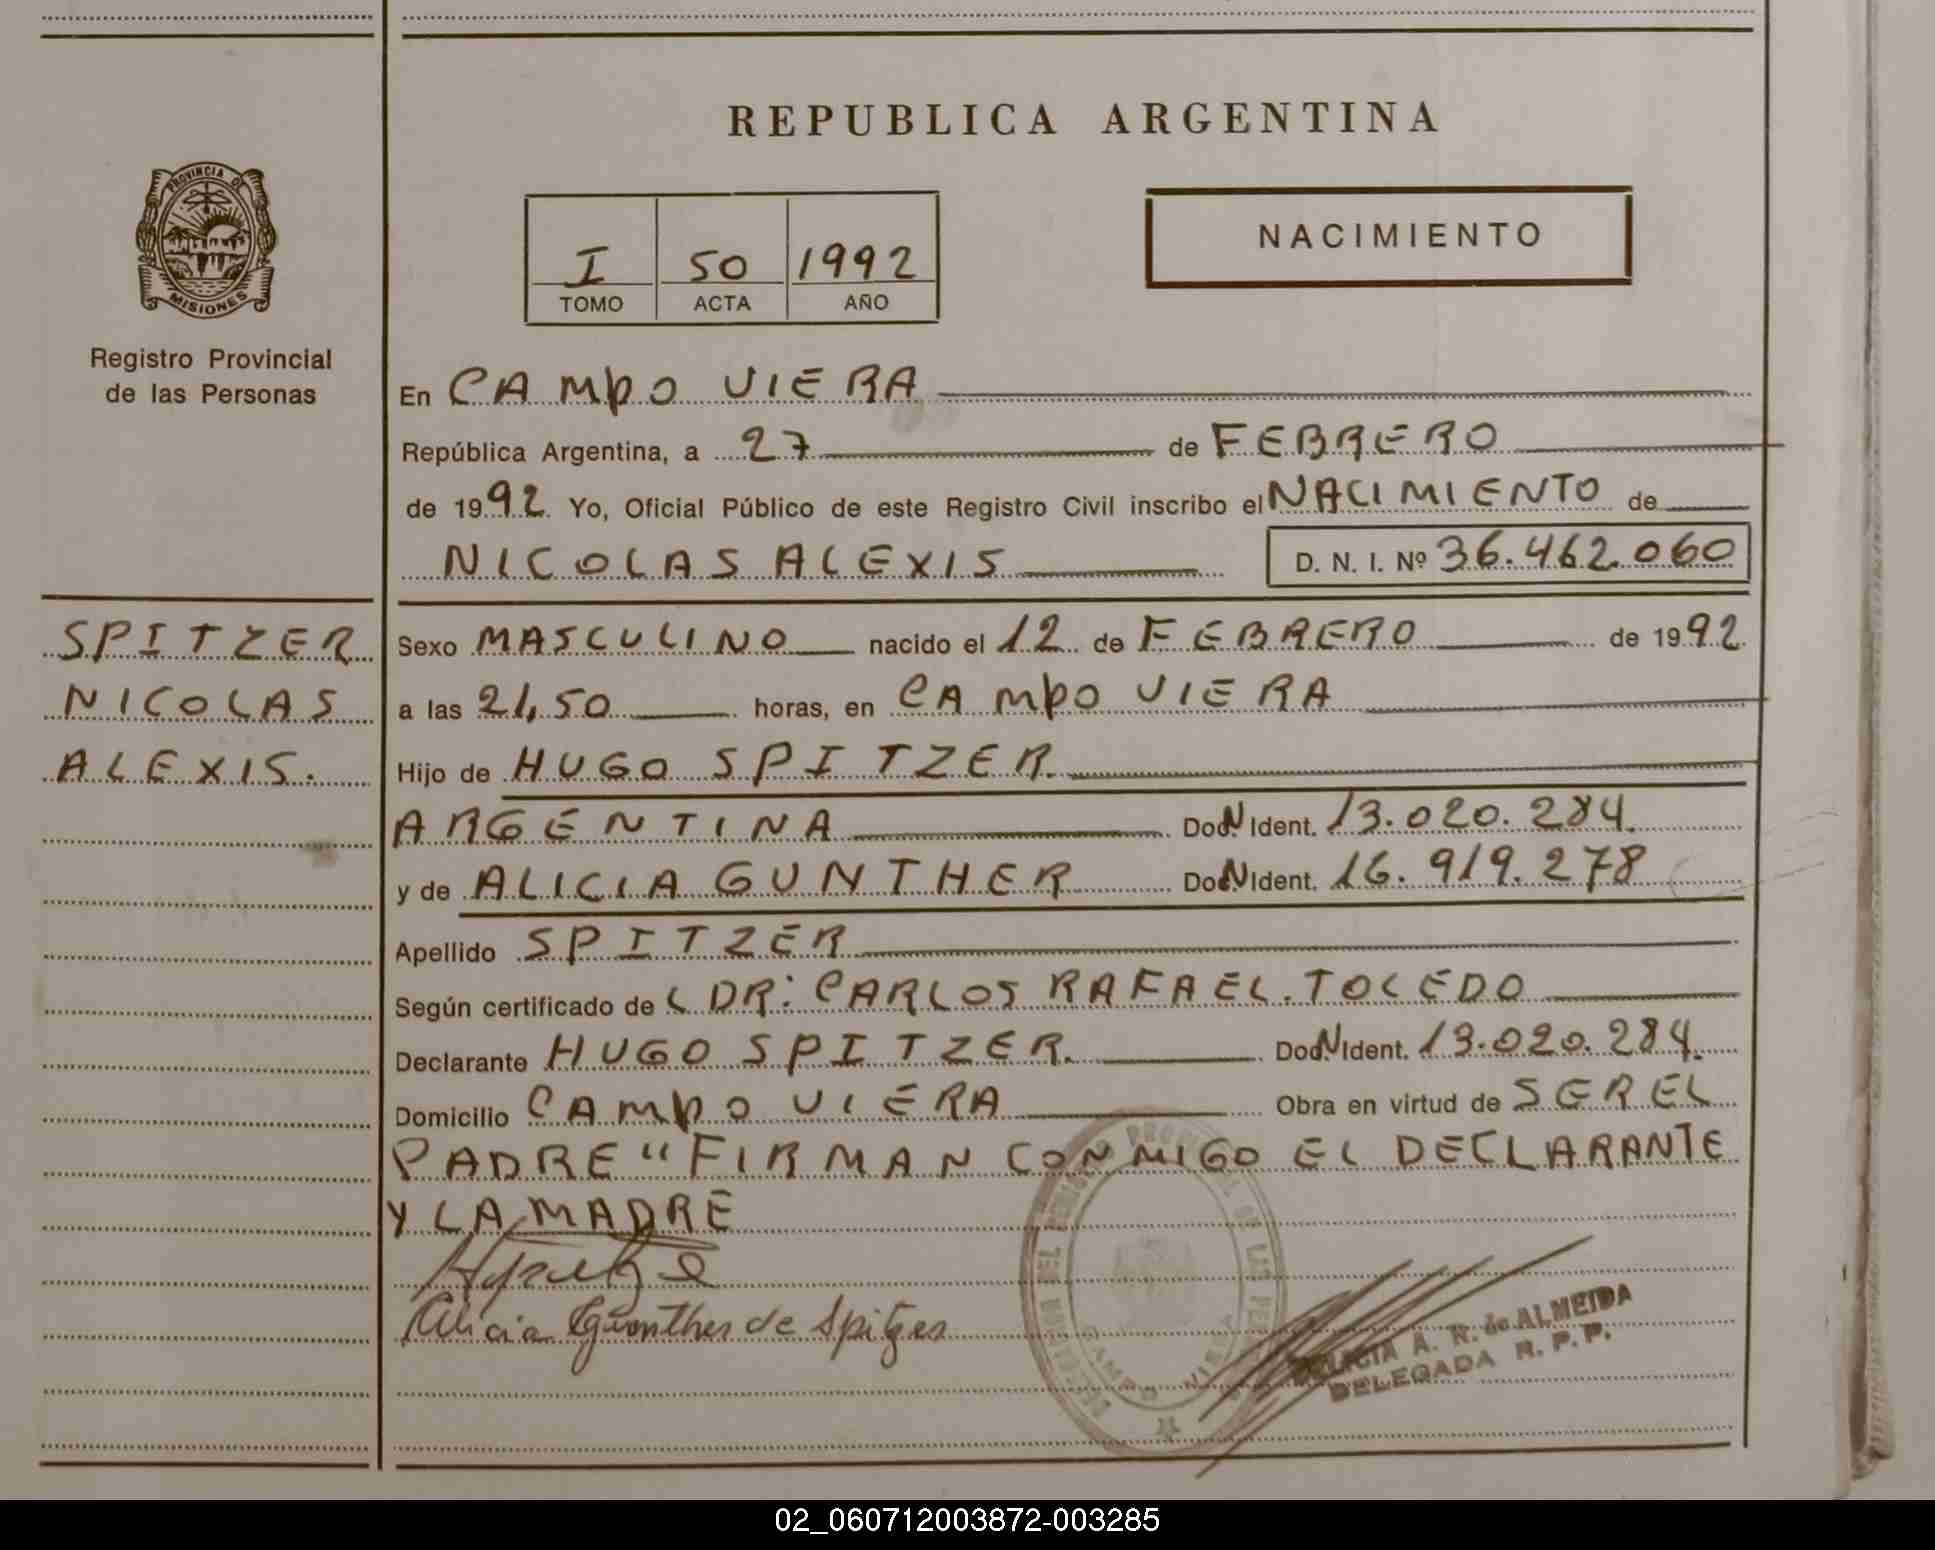 REPUBLICA ARGENTINA
PROVINCIA DE
MISIONES
Registro Provincial
de las Personas
I 50 1992
TOMO ACTA AÑO
NACIMIENTO
En CAMPO VIERA
República Argentina, a 27 de FEBRERO
de 1992. Yo, Oficial Público de este Registro Civil inscribo el NACIMIENTO de
NICOLAS ALEXIS D. N. I. Nº 36.462.060
SPITZER
NICOLAS
ALEXIS.
Sexo MASCULINO nacido el 12 de FEBRERO de 1992.
a las 21,50 horas, en CAMPO VIERA
Hijo de HUGO SPITZER.
ARGENTINA Doc.N Ident. 13.020.284.
y de ALICIA GUNTHER Doc.N Ident. 16.919.278
Apellido SPITZER
Según certificado de L DR: CARLOS RAFAEL. TOLEDO
Declarante HUGO SPITZER. Doc.N Ident. 13.020.284.
Domicilio CAMPO VIERA Obra en virtud de SER EL
PADRE " FIRMAN CONMIGO EL DECLARANTE
Y LA MADRE
Alicia Gunther de Spitzer
CAMPO VIERA
A. R. de ALMEIDA
DELEGADA R. P. P.
02_060712003872-003285